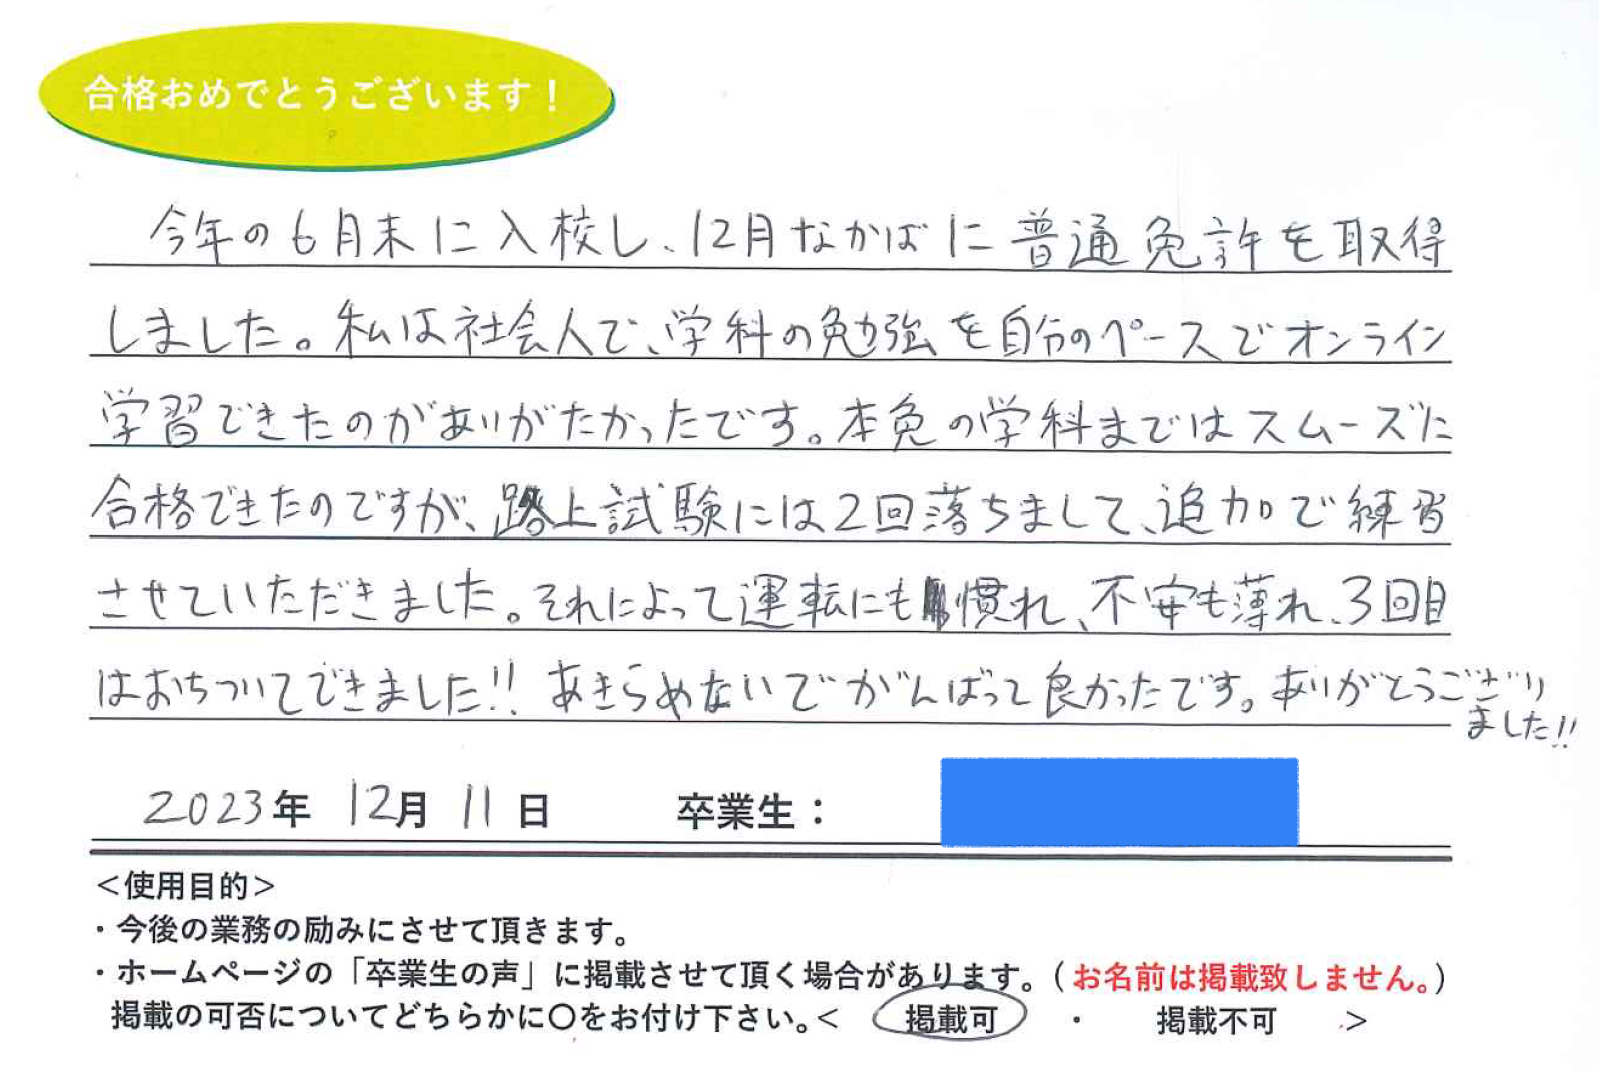 合格おめでとうございます！
今年の6月末に入校し、12月なかばに普通免許を取得
しました。私は社会人で、学科の勉強を自分のペースでオンライン
学習できたのがありがたかったです。本免の学科まではスムーズに
合格できたのですが、路上試験には2回落ちまして、追加で練習
させていただきました。それによって運転にも慣れ、不安も薄れ、3回目
はおちついてできました!! あきらめないでがんばって良かったです。ありがとうござり
ました!!
2023年 12月 11日 卒業生：
＜使用目的＞
・今後の業務の励みにさせて頂きます。
・ホームページの「卒業生の声」に掲載させて頂く場合があります。（お名前は掲載致しません。）
掲載の可否についてどちらかに〇をお付け下さい。＜ 掲載可 ・ 掲載不可 ＞